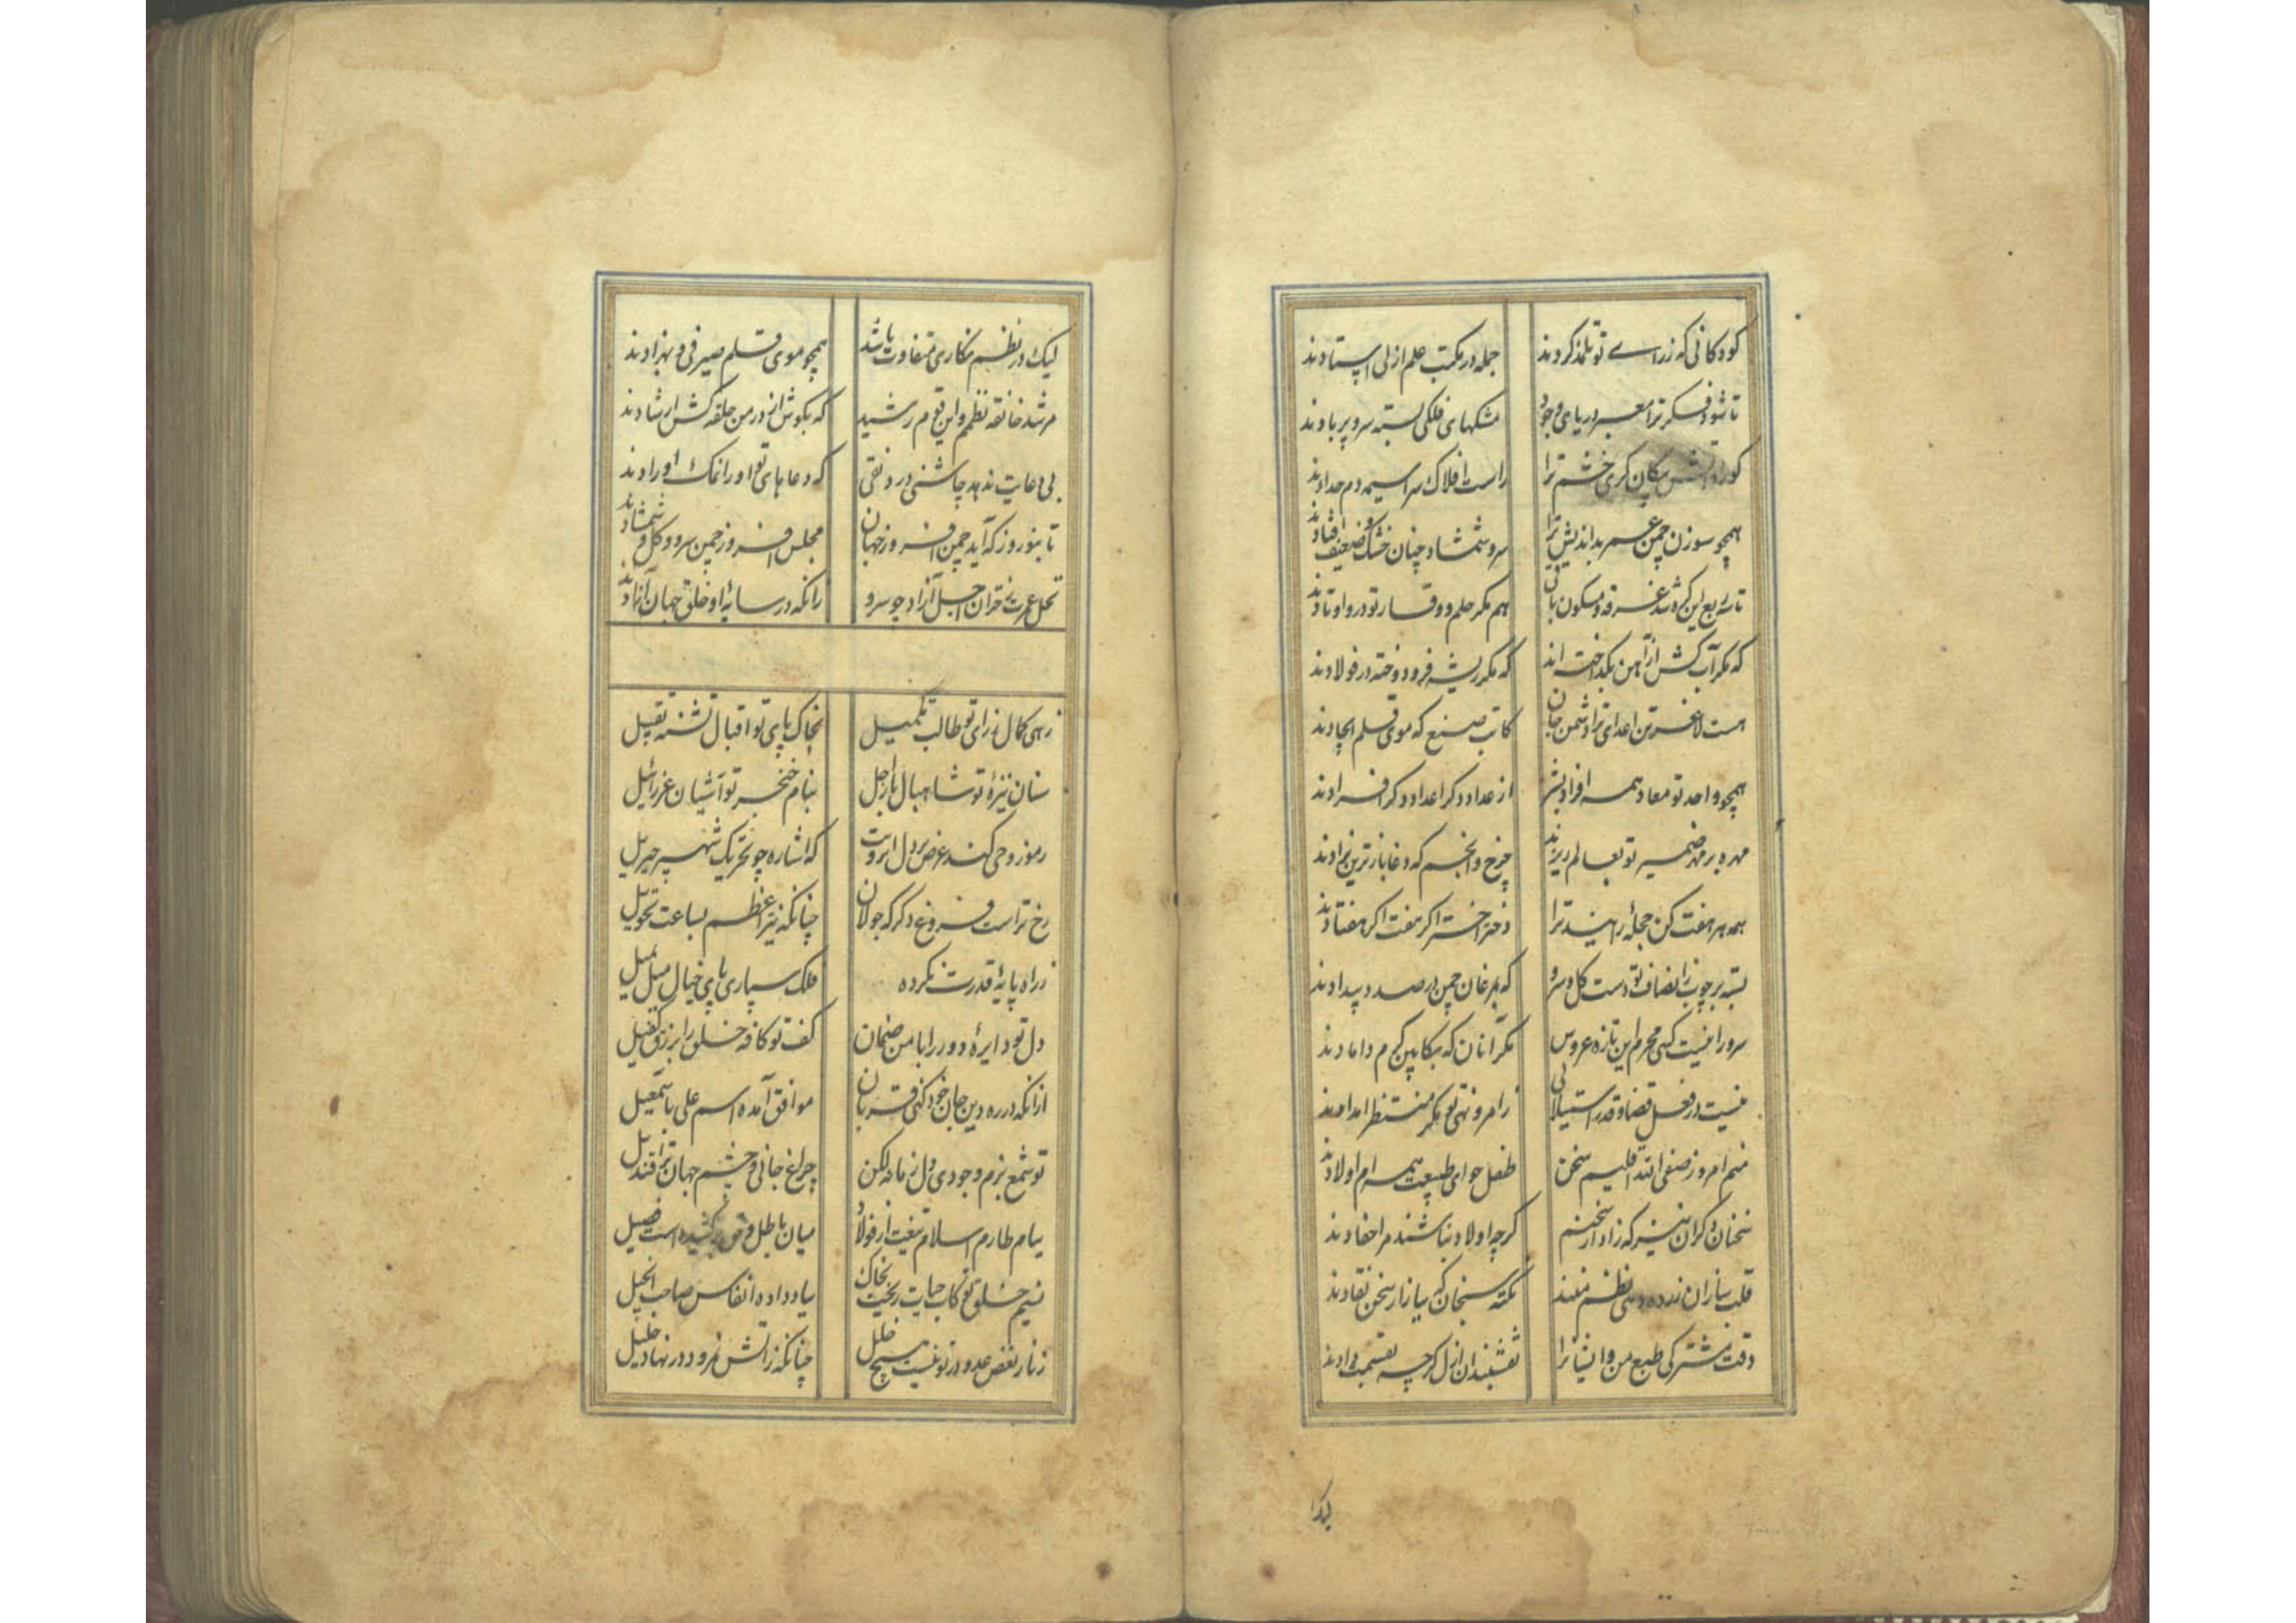 کودکانی که زرای تو تلمذ کردند
جمله در مکتب علم ازلی استادند
تا شود فکر ترا معبر دریای وجود
مشکهای فلکی بسته سر و پر بادند
کوره آتش مکان کری خشم ترا
راست افلاک سراسیمه دم حدادند
همچو سوزن چمن عمر بداندیش ترا
سرو شمشاد چنان خشک و ضعیف افتادند
تا سه ربع این کره شد غرقه و مسکون باقی
هم مکر حلم و وقار تو درو اوتادند
که مکر آب کش از آهن بکداخته اند
که مکر ریشه فرو دوخته در فولادند
هست لاغرتن اعدای ترا دشمن جان
کاتب صنع که موی قلم ایجادند
همچو واحد تو معاد همه افراد بشر
از عداد دکر اعداد دکر افرادند
مهره بر مهر ضمیر تو بعالم ریزند
چرخ و انجم که دغاباز ترین نرادند
همه بر هفت کن حجله راهیند ترا
دختر اختر اکر هفت اکر هفتادند
بسته بر چوب ز انصاف تو دست کل و سرو
که بمرغان چمن در صدد بیدادند
سرو را نیست کسی محرم این تازه عروس
مکر آنان که بکابین کرم دامادند
نیست در فعل قضا و قدر استیلائی
ز امر و نهی تو مکر منتظر امدادند
منم امروز صفی الله اقلیم سخن
طفل حوای طبیعت همه ام اولادند
سخنان دکران نیز که زاد از سخنم
کرچه اولاد نباشند مرا احفادند
قلب سازان زر ده دهی نظم منند
نکته سنجان که ببازار سخن نقادند
دقت مشترکی طبع من و ایشانرا
نقشبندان ازل کرچه بقسمت دادند
لیک در نظم نکاری متفاوت باشد
همچو موی قلم صیرفی و بهزادند
مرشد خانقه نظمم و این قوم رشید
که بکوش از در من حلقه کش ارشادند
بی دعایت ندهد چاشنی در دنقی
که دعاهای تو اوراد نمک اورادند
تا بنوروز که آید چمن افروز جهان
مجلس افروز چمن سرو و کل و شمشادند
نخل عمرت ز خزان اجل آزاد چو سرو
زانکه در سایه او خلق جهان آزادند
زهی کمال ز رای تو طالب تکمیل
بخاک پای تو اقبال تشنه تقبیل
سنان نیزه تو شاهبال باز اجل
نیام خنجر تو آشیان عزرائیل
رموز وحی کند عرض بر دل ابرویت
که اشاره چو تحریک شهپر جبریل
رخ تراست فروغ دکر که جولان
چنانکه نیر اعظم بساعت تحویل
ز راه پایه قدرت نکرده
فلک سپاری پای خیال میل بمیل
دل تو دایره دور را بامن ضمان
کف تو کافه خلق را برزق کفیل
از آنکه در ره دین جان خود کنی قربان
موافق آمده اسم علی باسمعیل
تو شمع بزم وجودی دل زمانه لکن
چراغ جانی و چشم جهان ترا قندیل
بیام طارم اسلام تیغت از فولاد
میان باطل و حق برکشیده است فصیل
نسیم خلق تو کاب حیات ریخت بخاک
بیاد داده انفاس صاحب انجیل
ز نار بغض عدو در تو نیست هیچ خلل
چنانکه ز آتش نمرود در نهاد خلیل
لیک در